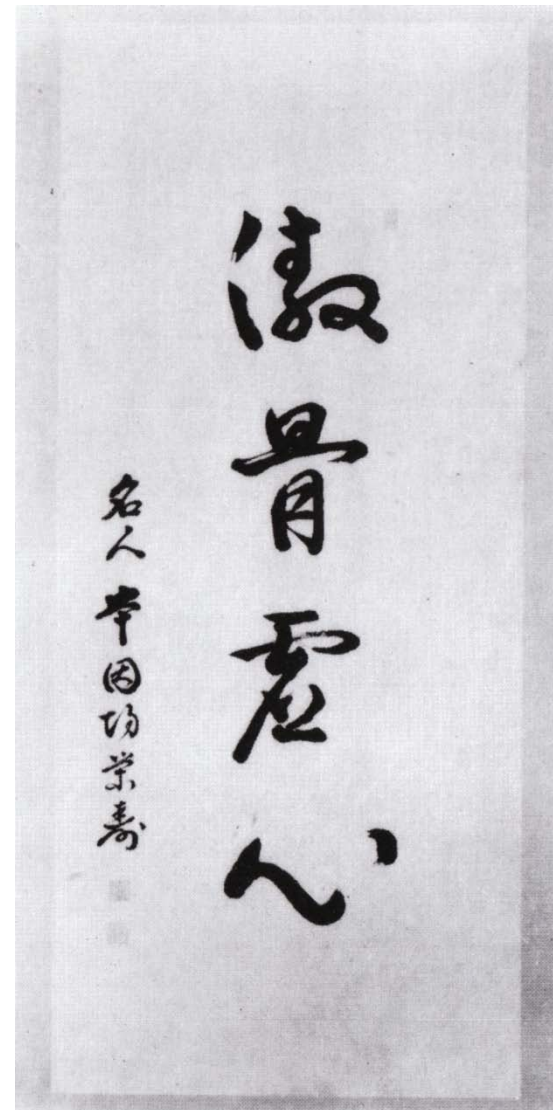 傲骨虚心
名人 本因坊栄寿